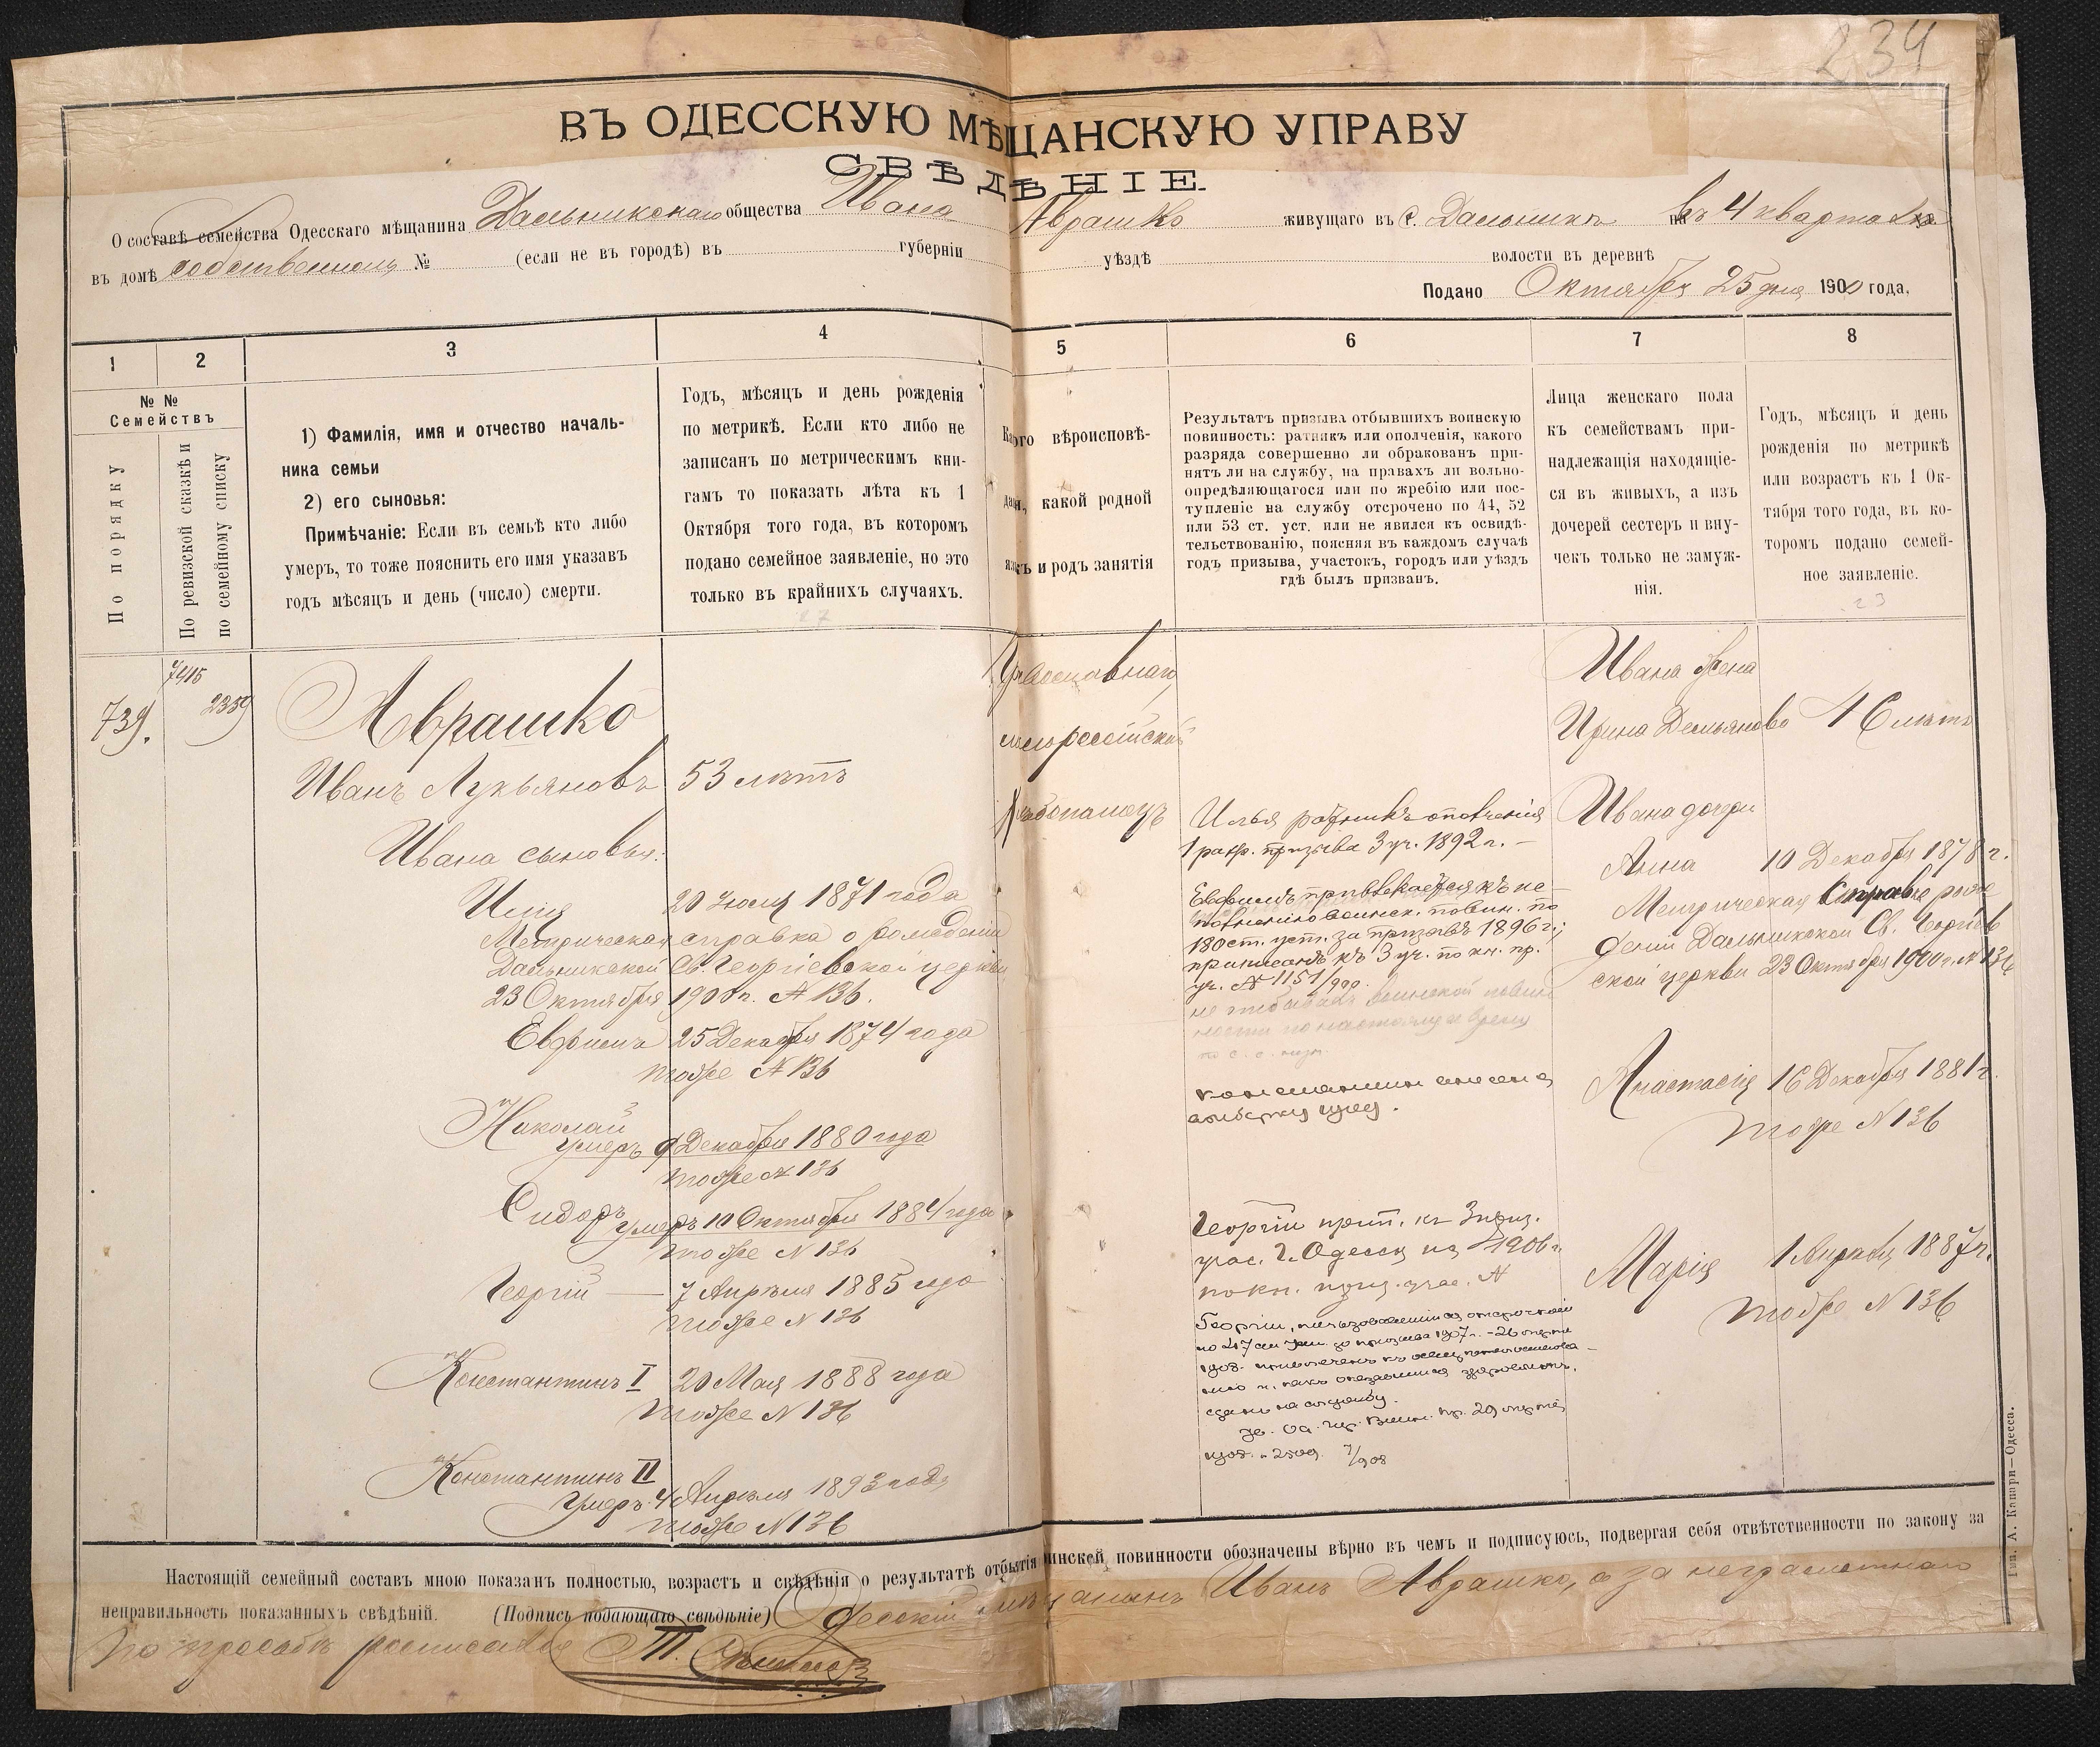 234
ВЪ ОДЕССКУЮ МѢЩАНСКУЮ УПРАВУ
СВѢДѢНІЕ.
О составѣ семейства Одесскаго мѣщанина Дальникскаго общества Ивана Аврашко живущаго въ с. Дальникъ на въ 4 квартала
въ домѣ собственномъ № (если не въ городѣ) въ губерніи уѣздѣ волости въ деревнѣ
Подано Октября 25 дня 1900 года.
1
2
3
4
5
6
7
8
№ №
Семействъ
По порядку
По ревизской сказкѣ и
по семейному списку
1) Фамилія, имя и отчество началь-
ника семьи
2) его сыновья:
Примѣчаніе: Если въ семьѣ кто либо
умеръ, то тоже пояснить его имя указавъ
годъ мѣсяцъ и день (число) смерти.
Годъ, мѣсяцъ и день рожденія
по метрикѣ. Если кто либо не
записанъ по метрическимъ кни-
гамъ то показать лѣта къ 1
Октября того года, въ которомъ
подано семейное заявленіе, но это
только въ крайнихъ случаяхъ.
27
Какого вѣроисповѣ-
данія, какой родной
языкъ и родъ занятія
Результатъ призыва отбывшихъ воинскую
повинность: ратникъ или ополченія, какого
разряда совершенно ли обракованъ при-
нятъ ли на службу, на правахъ ли вольно-
опредѣляющагося или по жребію или пос-
тупленіе на службу отсрочено по 44, 52
или 53 ст. уст. или не явился къ освидѣ-
тельствованію, поясняя въ каждомъ случаѣ
годъ призыва, участокъ, городъ или уѣздъ
гдѣ былъ призванъ.
Лица женскаго пола
къ семействамъ при-
надлежащія находящіе-
ся въ живыхъ, а изъ
дочерей сестеръ и вну-
чекъ только не замуж-
нія.
Годъ, мѣсяцъ и день
рожденія по метрикѣ
или возрастъ къ 1 Ок-
тября того года, въ ко-
торомъ подано семей-
ное заявленіе.
23
739.
7415
2359
Аврашко
Иванъ Лукьяновъ 53 лѣтъ
Ивана сыновья:
Илія 20 Іюля 1871 года
Метрическая справка о рожденіи
Дальникской Св. Георгіевской церкви
23 Октября 1900 г. № 136.
Евфимъ 25 Декабря 1874 года
тоже № 136
Николай
умеръ 9 Декабря 1880 года
тоже № 136
Сидоръ
умеръ 10 Октября 1884 года
тоже № 136
Георгій — 7 Апрѣля 1885 года
тоже № 136
Константинъ I 20 Мая 1888 года
тоже № 136
Константинъ II
умеръ 4 Апрѣля 1893 года
тоже № 136
Православнаго,
малороссійскій
Хлѣбопашецъ
Илья ратникъ ополченія
1 разр. призыва 3 уч. 1892 г. —
Евфимъ привлекается къ ис-
полненію воинск. повин. по
180 ст. уст. за призывъ 1896 г.;
приписанъ къ 3 уч. по кн. пр.
уч. № 1151/900.
не отбывалъ воинской повин
ности по настоящее время
Георгій прип. къ 3 приз.
учас. г. Одессы на 1906 г.
по кн. приз. учас. №
Георгій, пользовавшійся отсрочкой
по 47 ст. уст. до призыва 1907 г. - 26 октя
сданъ на службу.
Ивана жена
Ирина Демьянова 46 лѣтъ
Ивана дочери
Анна 10 Декабря 1878 г.
Метрическая справка о рож
деніи Дальникской Св. Георгіев
ской церкви 23 Октября 1900 г. № 136
Анастасія 16 Декабря 1881 г.
тоже № 136
Марія 1 Апрѣля 1887 г.
тоже № 136
Настоящій семейный составъ мною показанъ полностью, возрастъ и свѣдѣнія о результатѣ отбытія воинской повинности обозначены вѣрно въ чемъ и подписуюсь, подвергая себя отвѣтственности по закону за
неправильность показанныхъ свѣдѣній. (Подпись подающаго свѣдѣніе) Одесскій мѣщанинъ Иванъ Аврашко, а за неграмотнаго
по просьбѣ росписался
Тип. А. Канари—Одесса.